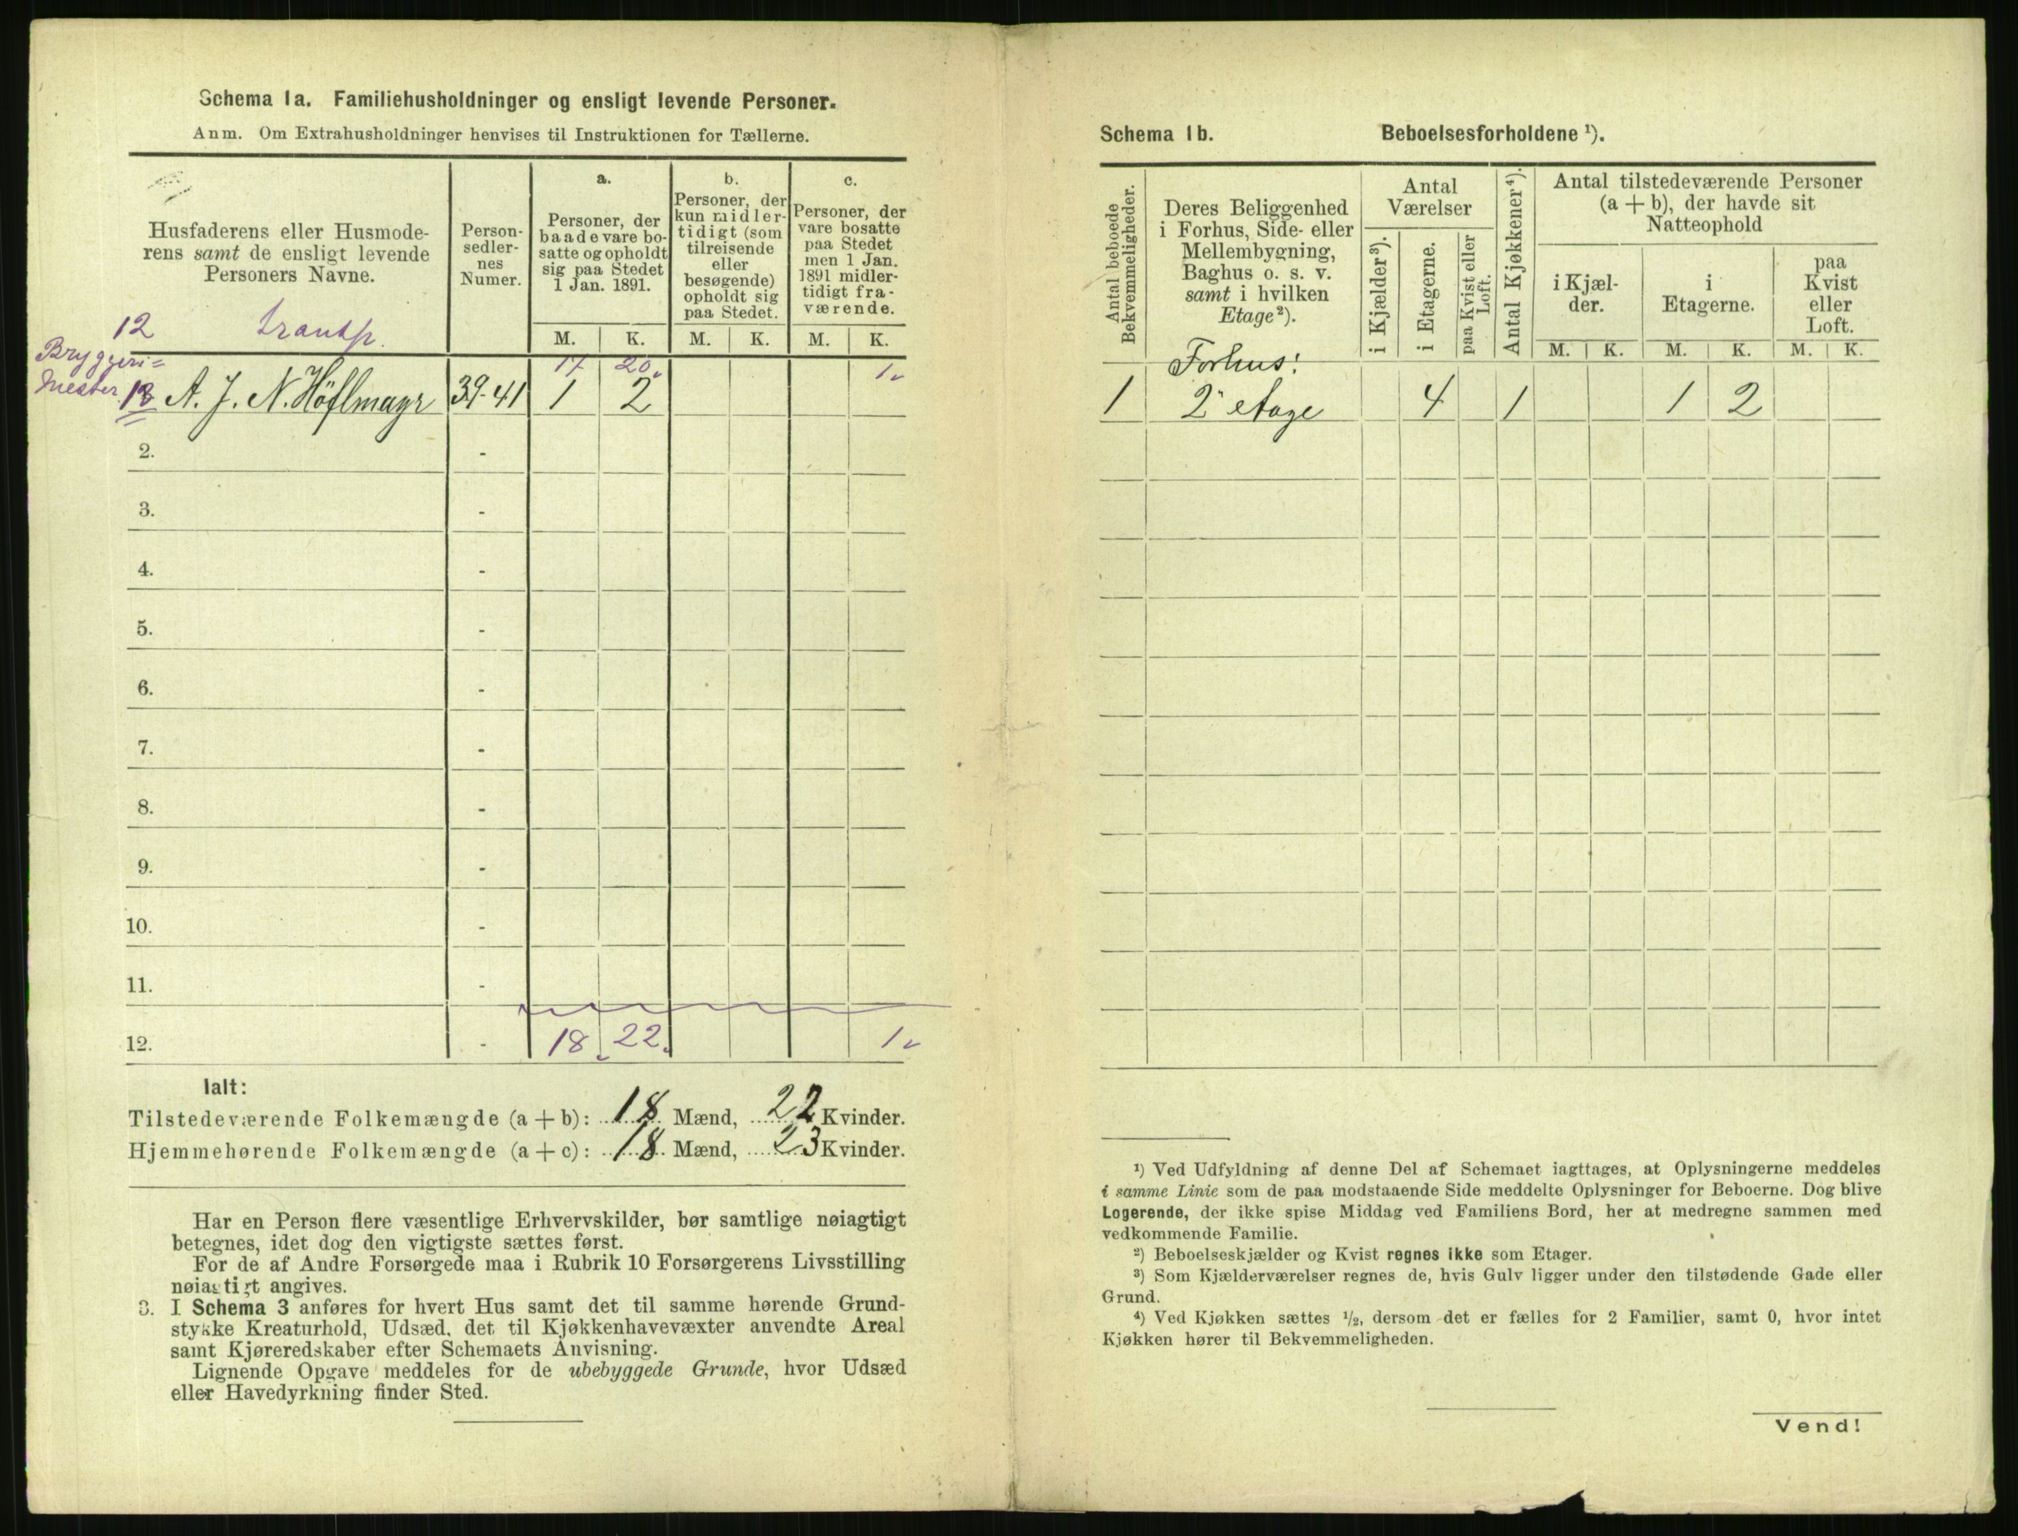 Schema 1a. Familiehusholdninger og ensligt levende Personer.
Anm. Om Extrahusholdninger henvises til Instruktionen for Tællerne.
Husfaderens eller Husmode-
rens samt de ensligt levende
Personers Navne.
Person-
sedler-
nes
Numer.
a.
Personer, der
baade vare bo-
satte og opholdt
sig paa Stedet
1 Jan. 1891.
b.
Personer, der
kun midler-
tidigt (som
tilreisende
eller
besøgende)
opholdt sig
paa Stedet.
c.
Personer, der
vare bosatte
paa Stedet
men 1 Jan.
1891 midler-
tidigt fra-
værende.
M. K. M. K. M. K.
12 transp. 17 20 1
Bryggeri=
mester 13 A. J. N. Höflmayr 39-41 1 2
2. -
3. -
4. -
5. -
6. -
7. -
8. -
9. -
10. -
11. -
12. - 18 22 1
Ialt:
Tilstedeværende Folkemængde (a + b): 18 Mænd, 22 Kvinder.
Hjemmehørende Folkemængde (a + c): 18 Mænd, 23 Kvinder.
Har en Person flere væsentlige Erhvervskilder, bør samtlige nøiagtigt
betegnes, idet dog den vigtigste sættes først.
For de af Andre Forsørgede maa i Rubrik 10 Forsørgerens Livsstilling
nøiagtigt angives.
3. I Schema 3 anføres for hvert Hus samt det til samme hørende Grund-
stykke Kreaturhold, Udsæd, det til Kjøkkenhavevæxter anvendte Areal
samt Kjøreredskaber efter Schemaets Anvisning.
Lignende Opgave meddeles for de ubebyggede Grunde, hvor Udsæd
eller Havedyrkning finder Sted.
Schema 1b. Beboelsesforholdene ¹).
Antal beboede
Bekvemmeligheder.
Deres Beliggenhed
i Forhus, Side- eller
Mellembygning,
Baghus o. s. v.
samt i hvilken
Etage²).
Antal
Værelser
i Kjælder³).
i Etagerne.
paa Kvist eller
Loft.
Antal Kjøkkener⁴).
Antal tilstedeværende Personer
(a + b), der havde sit
Natteophold
i Kjæl-
der.
i
Etagerne.
paa
Kvist
eller
Loft.
M. K. M. K. M. K.
Forhus:
1 2 etage 4 1 1 2
¹) Ved Udfyldning af denne Del af Schemaet iagttages, at Oplysningerne meddeles
i samme Linie som de paa modstaaende Side meddelte Oplysninger for Beboerne. Dog blive
Logerende, der ikke spise Middag ved Familiens Bord, her at medregne sammen med
vedkommende Familie.
²) Beboelseskjælder og Kvist regnes ikke som Etager.
³) Som Kjælderværelser regnes de, hvis Gulv ligger under den tilstødende Gade eller
Grund.
⁴) Ved Kjøkken sættes ½, dersom det er fælles for 2 Familier, samt 0, hvor intet
Kjøkken hører til Bekvemmeligheden.
Vend!